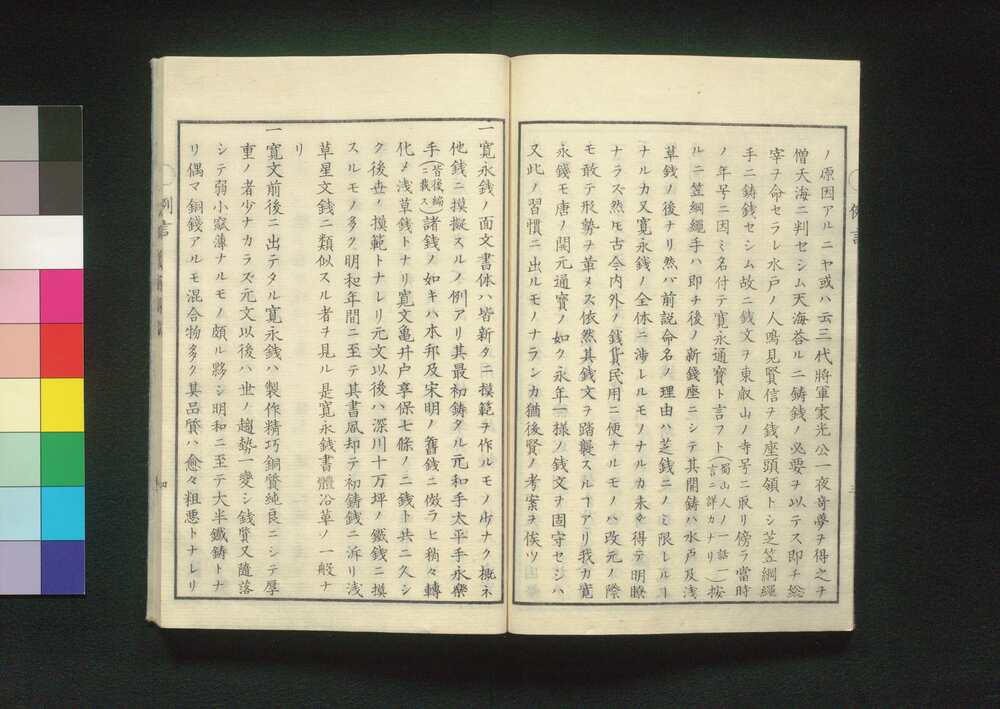 例言
ノ原因アルニヤ或ハ云三代將軍家光公一夜竒夢ヲ得之ヲ
僧天海ニ判セシム天海答ルニ鑄銭ノ必要ヲ以テス即チ総
宰ヲ命セラレ水戸ノ人鳴見賢信ヲ銭座頭領トシ芝笠綱繩
手ニ鋳銭セシム故ニ銭文ヲ東叡山ノ寺号ニ取リ傍ラ當時
ノ年号ニ因ミ名付テ寛永通寳ト言フト(蜀山人ノ一話一言ニ詳カナリ)按
ルニ笠綱繩手ハ即チ後ノ新銭座ニシテ其開鋳ハ水戸及浅
草銭ノ後ナリ然ハ前説命名ノ理由ハ芝銭ニノミ限レルヿ
ナルカ又寛永銭ノ全体ニ渉レルモノナルカ未タ得テ明瞭
ナラス然𪜈古今内外ノ銭貨民用ニ便ナルモノハ改元ノ際
モ敢テ形勢ヲ革メス依然其銭文ヲ踏襲スルヿアリ我カ寛
永錢モ唐ノ開元通寳ノ如ク永年一様ノ銭文ヲ固守セシハ
又此ノ習慣ニ出ルモノナランカ猶後賢ノ考案ヲ俟ツ
一 寛永銭ノ面文書体ハ皆新タニ摸範ヲ作ルモノ少ナク概ネ
他銭ニ摸擬スルノ例アリ其最初鋳タル元和手太平手永樂
手(皆後編ニ載ス)諸銭ノ如キハ本邦及宋明ノ舊銭ニ倣ラヒ稍々轉
化メ浅草銭トナリ寛文亀井戸享保七條ノ二銭ト共ニ久シ
ク後世ノ摸範トナレリ元文以後ハ深川十万坪ノ鐵銭ニ摸
スルモノ多ク明和年間ニ至テ其書風却テ初鋳銭ニ泝リ浅
草星文銭ニ類似スル者ヲ見ル是寛永銭書體沿革ノ一般ナ
リ
一 寛文前後ニ出テタル寛永銭ハ製作精巧銅質純良ニシテ厚
重ノ者少ナカラス元文以後ハ世ノ趨勢一變シ銭質又隨落
シテ弱小窳薄ナルモノ頗ル夥シ明和ニ至テ大半鐵鋳トナ
リ偶マ銅錢アルモ混合物多ク其品質ハ愈々粗悪トナレリ
例言